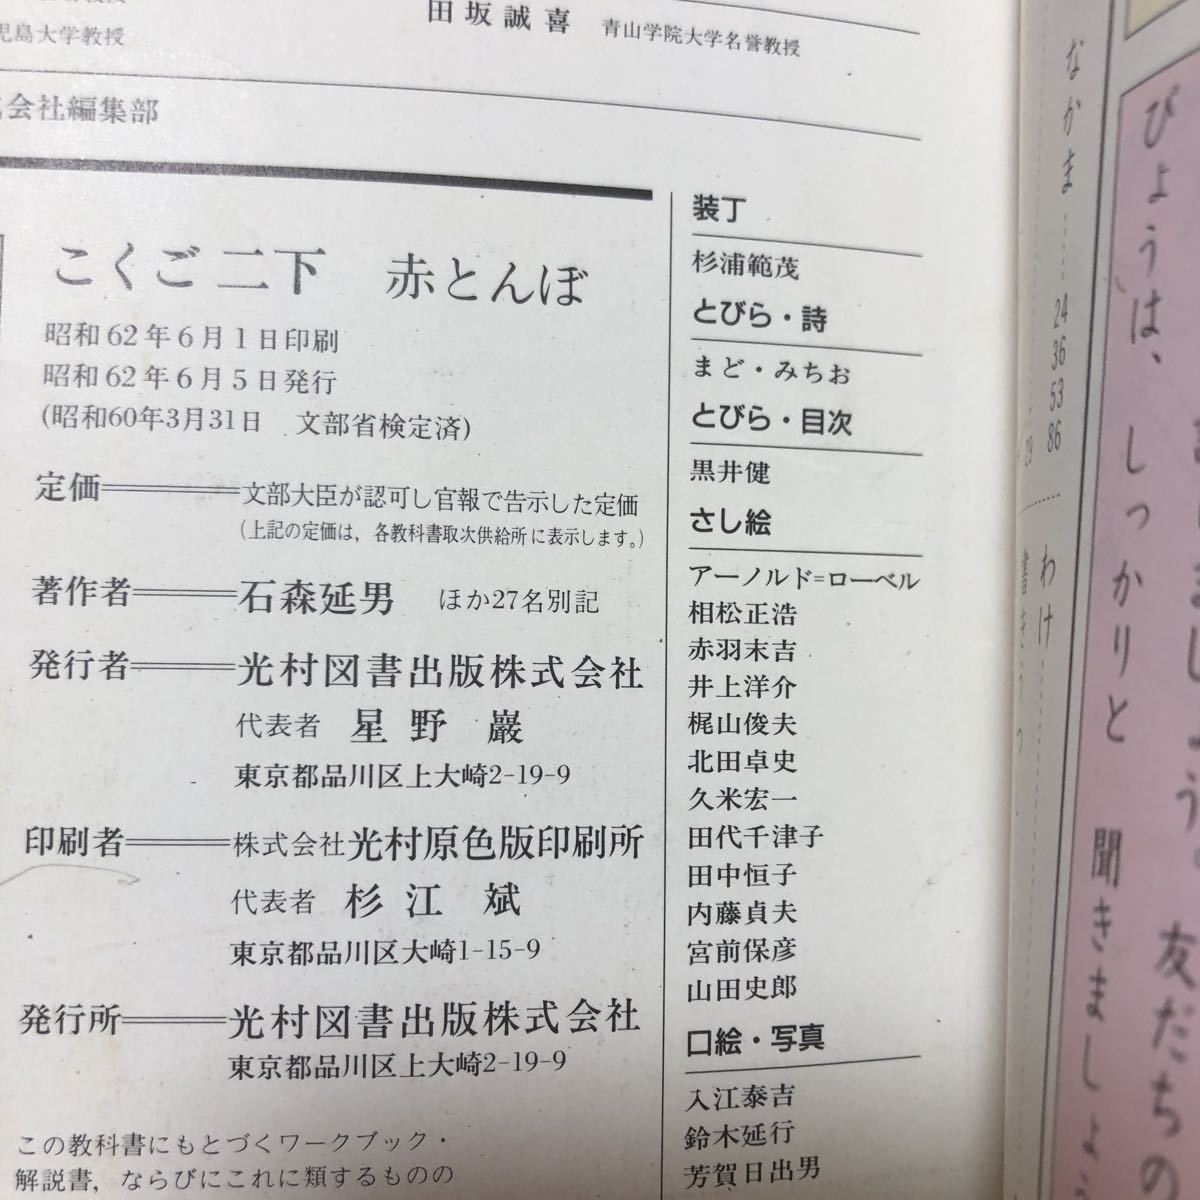 田坂誠喜 青山学院大学名誉教授
児島大学教授
会社編集部
こくご 二下 赤とんぼ
昭和62年6月1日印刷
昭和62年6月5日発行
(昭和60年3月31日 文部省検定済)
定価 文部大臣が認可し官報で告示した定価
(上記の定価は，各教科書取次供給所に表示します。)
著作者 石森延男 ほか27名別記
発行者 光村図書出版株式会社
代表者 星野 巖
東京都品川区上大崎2-19-9
印刷者 株式会社光村原色版印刷所
代表者 杉江 斌
東京都品川区大崎1-15-9
発行所 光村図書出版株式会社
東京都品川区上大崎2-19-9
この教科書にもとづくワークブック・
解説書，ならびにこれに類するものの
装丁
杉浦範茂
とびら・詩
まど・みちお
とびら・目次
黒井健
さし絵
アーノルド=ローベル
相松正浩
赤羽末吉
井上洋介
梶山俊夫
北田卓史
久米宏一
田代千津子
田中恒子
内藤貞夫
宮前保彦
山田史郎
口絵・写真
入江泰吉
鈴木延行
芳賀日出男
なかま
24
36
53
86
29
わけ
書きうつ
ましょう。 友だちの
びょうは、 しっかりと 聞きましょう